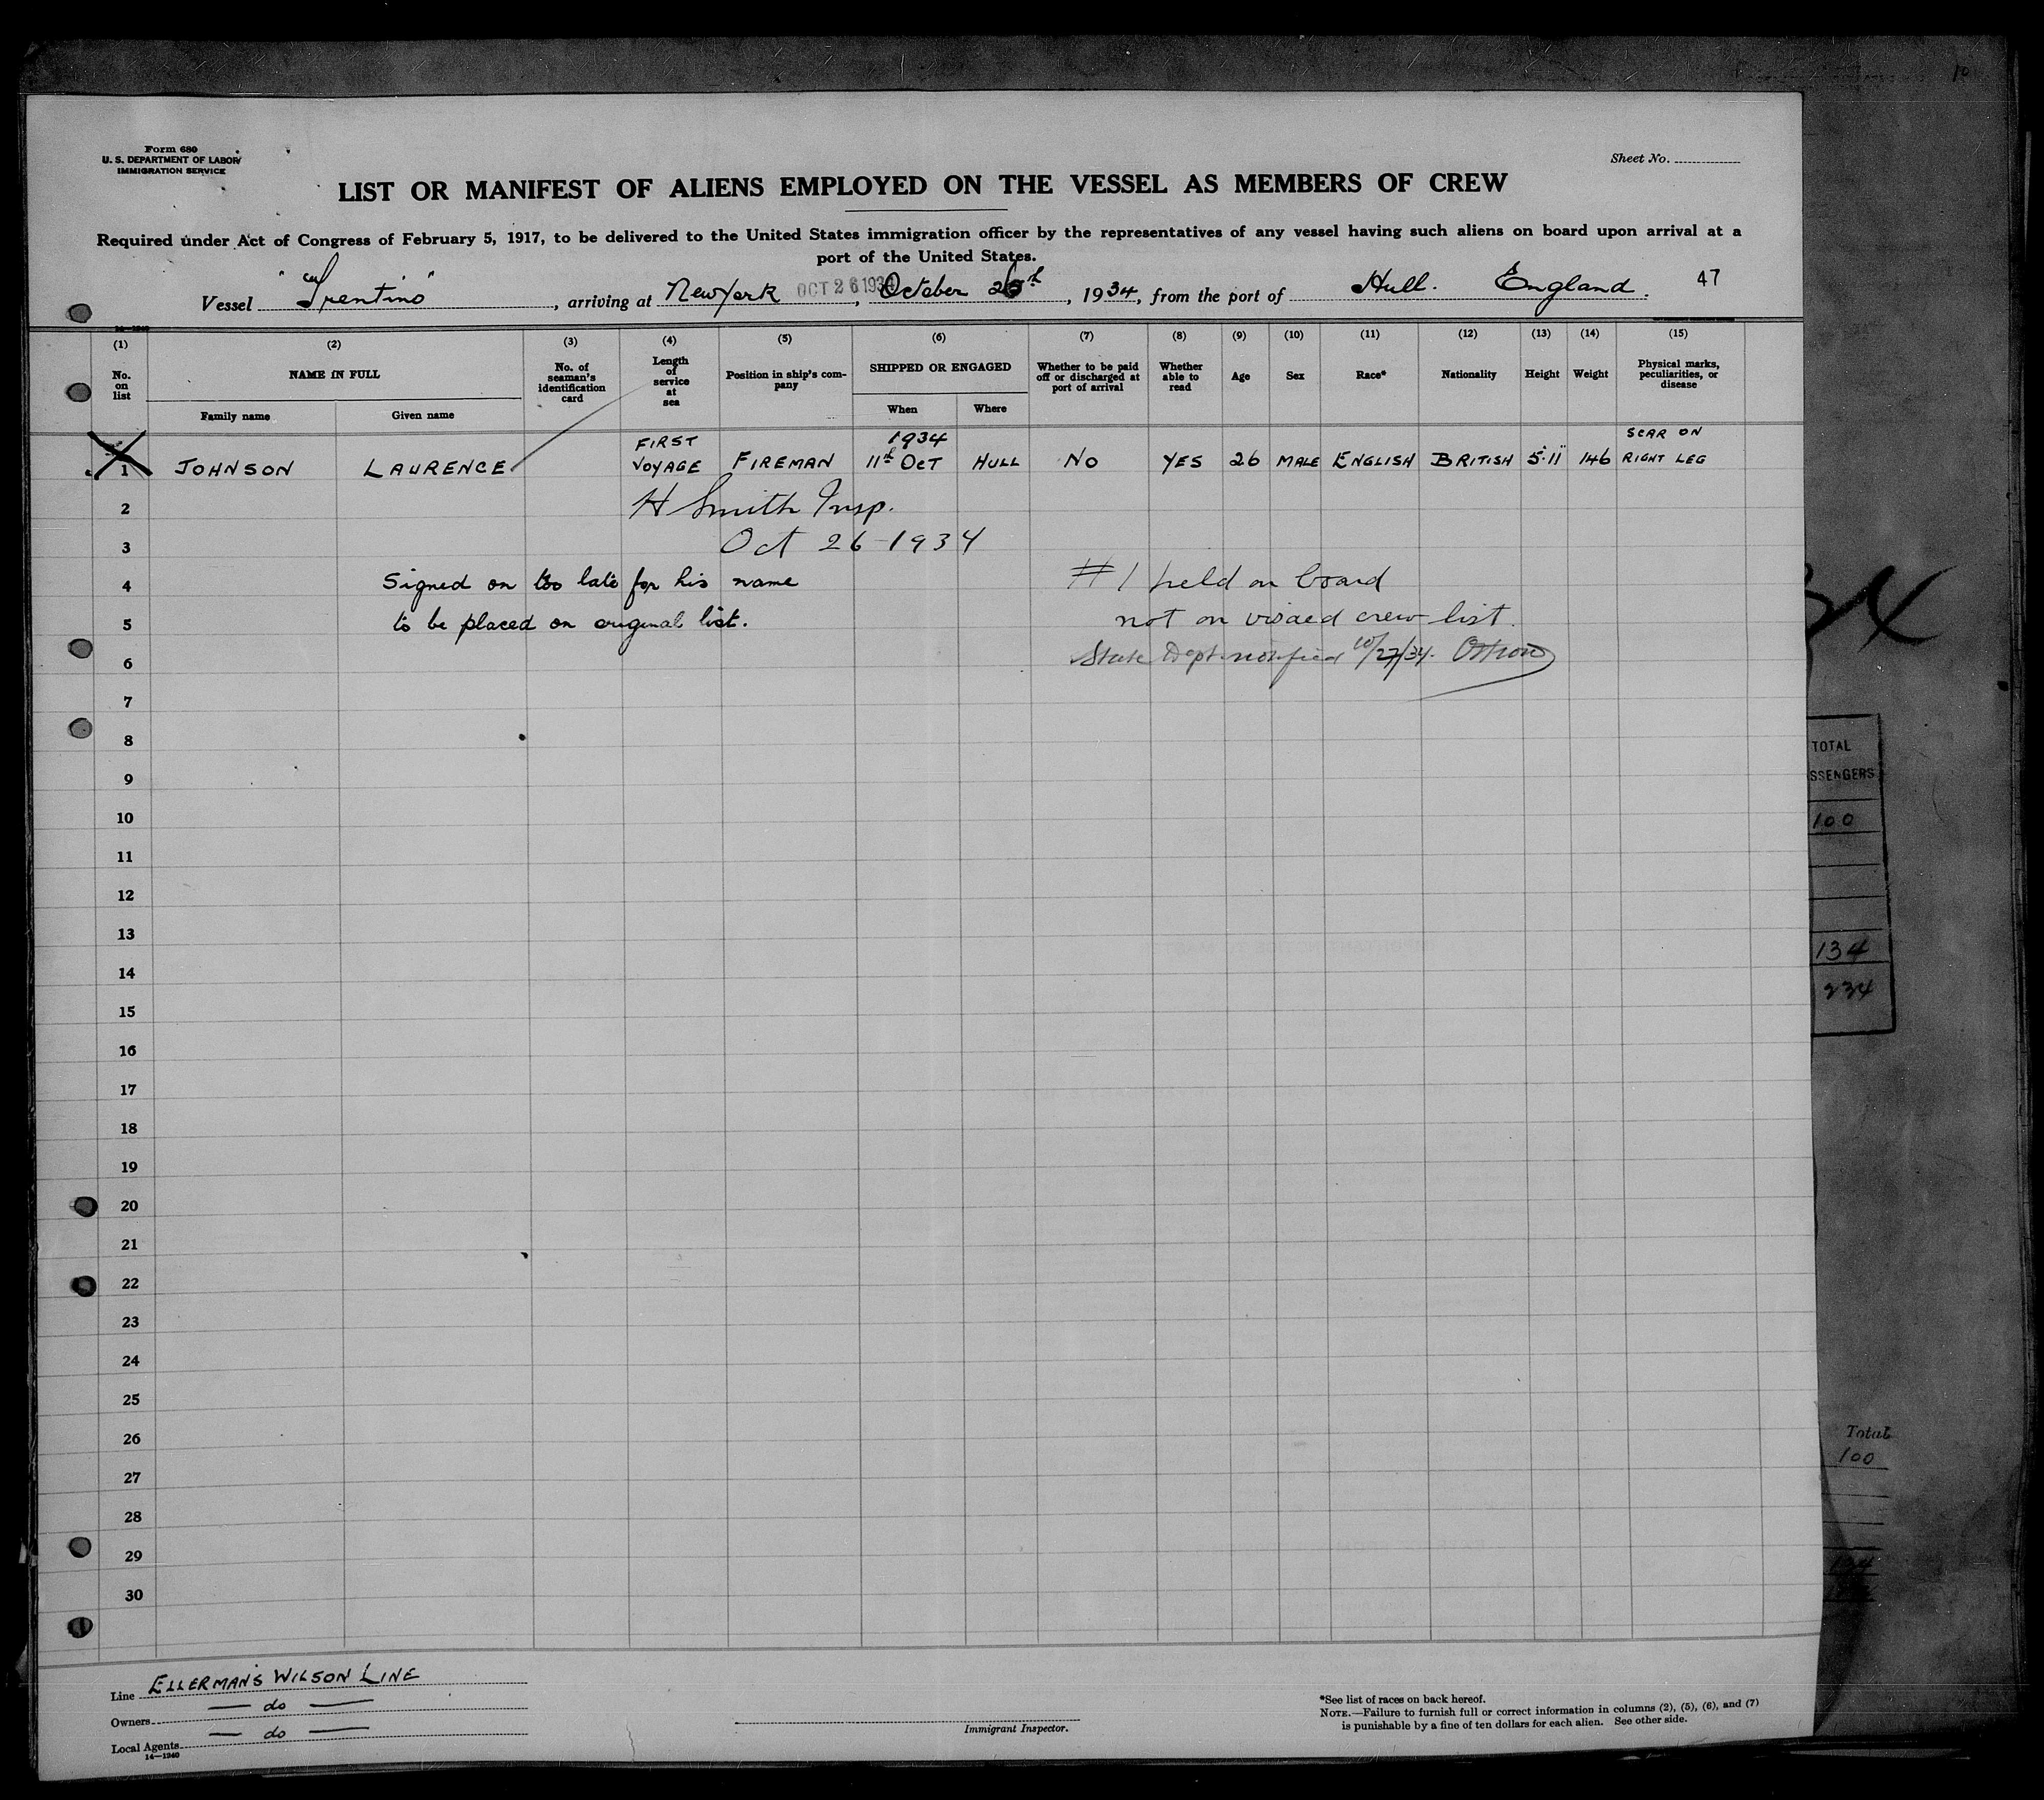 10
Form 680
U. S. DEPARTMENT OF LABOR
IMMIGRATION SERVICE
Sheet No.
LIST OR MANIFEST OF ALIENS EMPLOYED ON THE VESSEL AS MEMBERS OF CREW
Required under Act of Congress of February 5, 1917, to be delivered to the United States immigration officer by the representatives of any vessel having such aliens on board upon arrival at a
port of the United States.
Vessel "Trentino", arriving at New York OCT 26 1934, October 26th, 1934, from the port of Hull. England. 47
(1) (2) (3) (4) (5) (6) (7) (8) (9) (10) (11) (12) (13) (14) (15)
No. on list
NAME IN FULL
Family name
Given name
No. of seaman's identification card
Length of service at sea
Position in ship's company
SHIPPED OR ENGAGED
When
Where
Whether to be paid off or discharged at port of arrival
Whether able to read
Age
Sex
Race*
Nationality
Height
Weight
Physical marks, peculiarities, or disease
1 JOHNSON LAURENCE FIRST VOYAGE FIREMAN 1934 11th OCT HULL NO YES 26 MALE ENGLISH BRITISH 5·11" 146 SCAR ON RIGHT LEG
2 H Smith Insp.
3 Oct 26-1934
4 Signed on too late for his name # 1 held on board
5 to be placed on original list. not on visaed crew list.
6 State Dept notified 10/27/34.
7
8
9
10
11
12
13
14
15
16
17
18
19
20
21
22
23
24
25
26
27
28
29
30
TOTAL
SSENGERS
100
134
234
Total
100
Line ELLERMAN'S WILSON LINE
Owners — do —
Local Agents — do —
14—1240
Immigrant Inspector.
*See list of races on back hereof.
NOTE.—Failure to furnish full or correct information in columns (2), (5), (6), and (7)
is punishable by a fine of ten dollars for each alien. See other side.